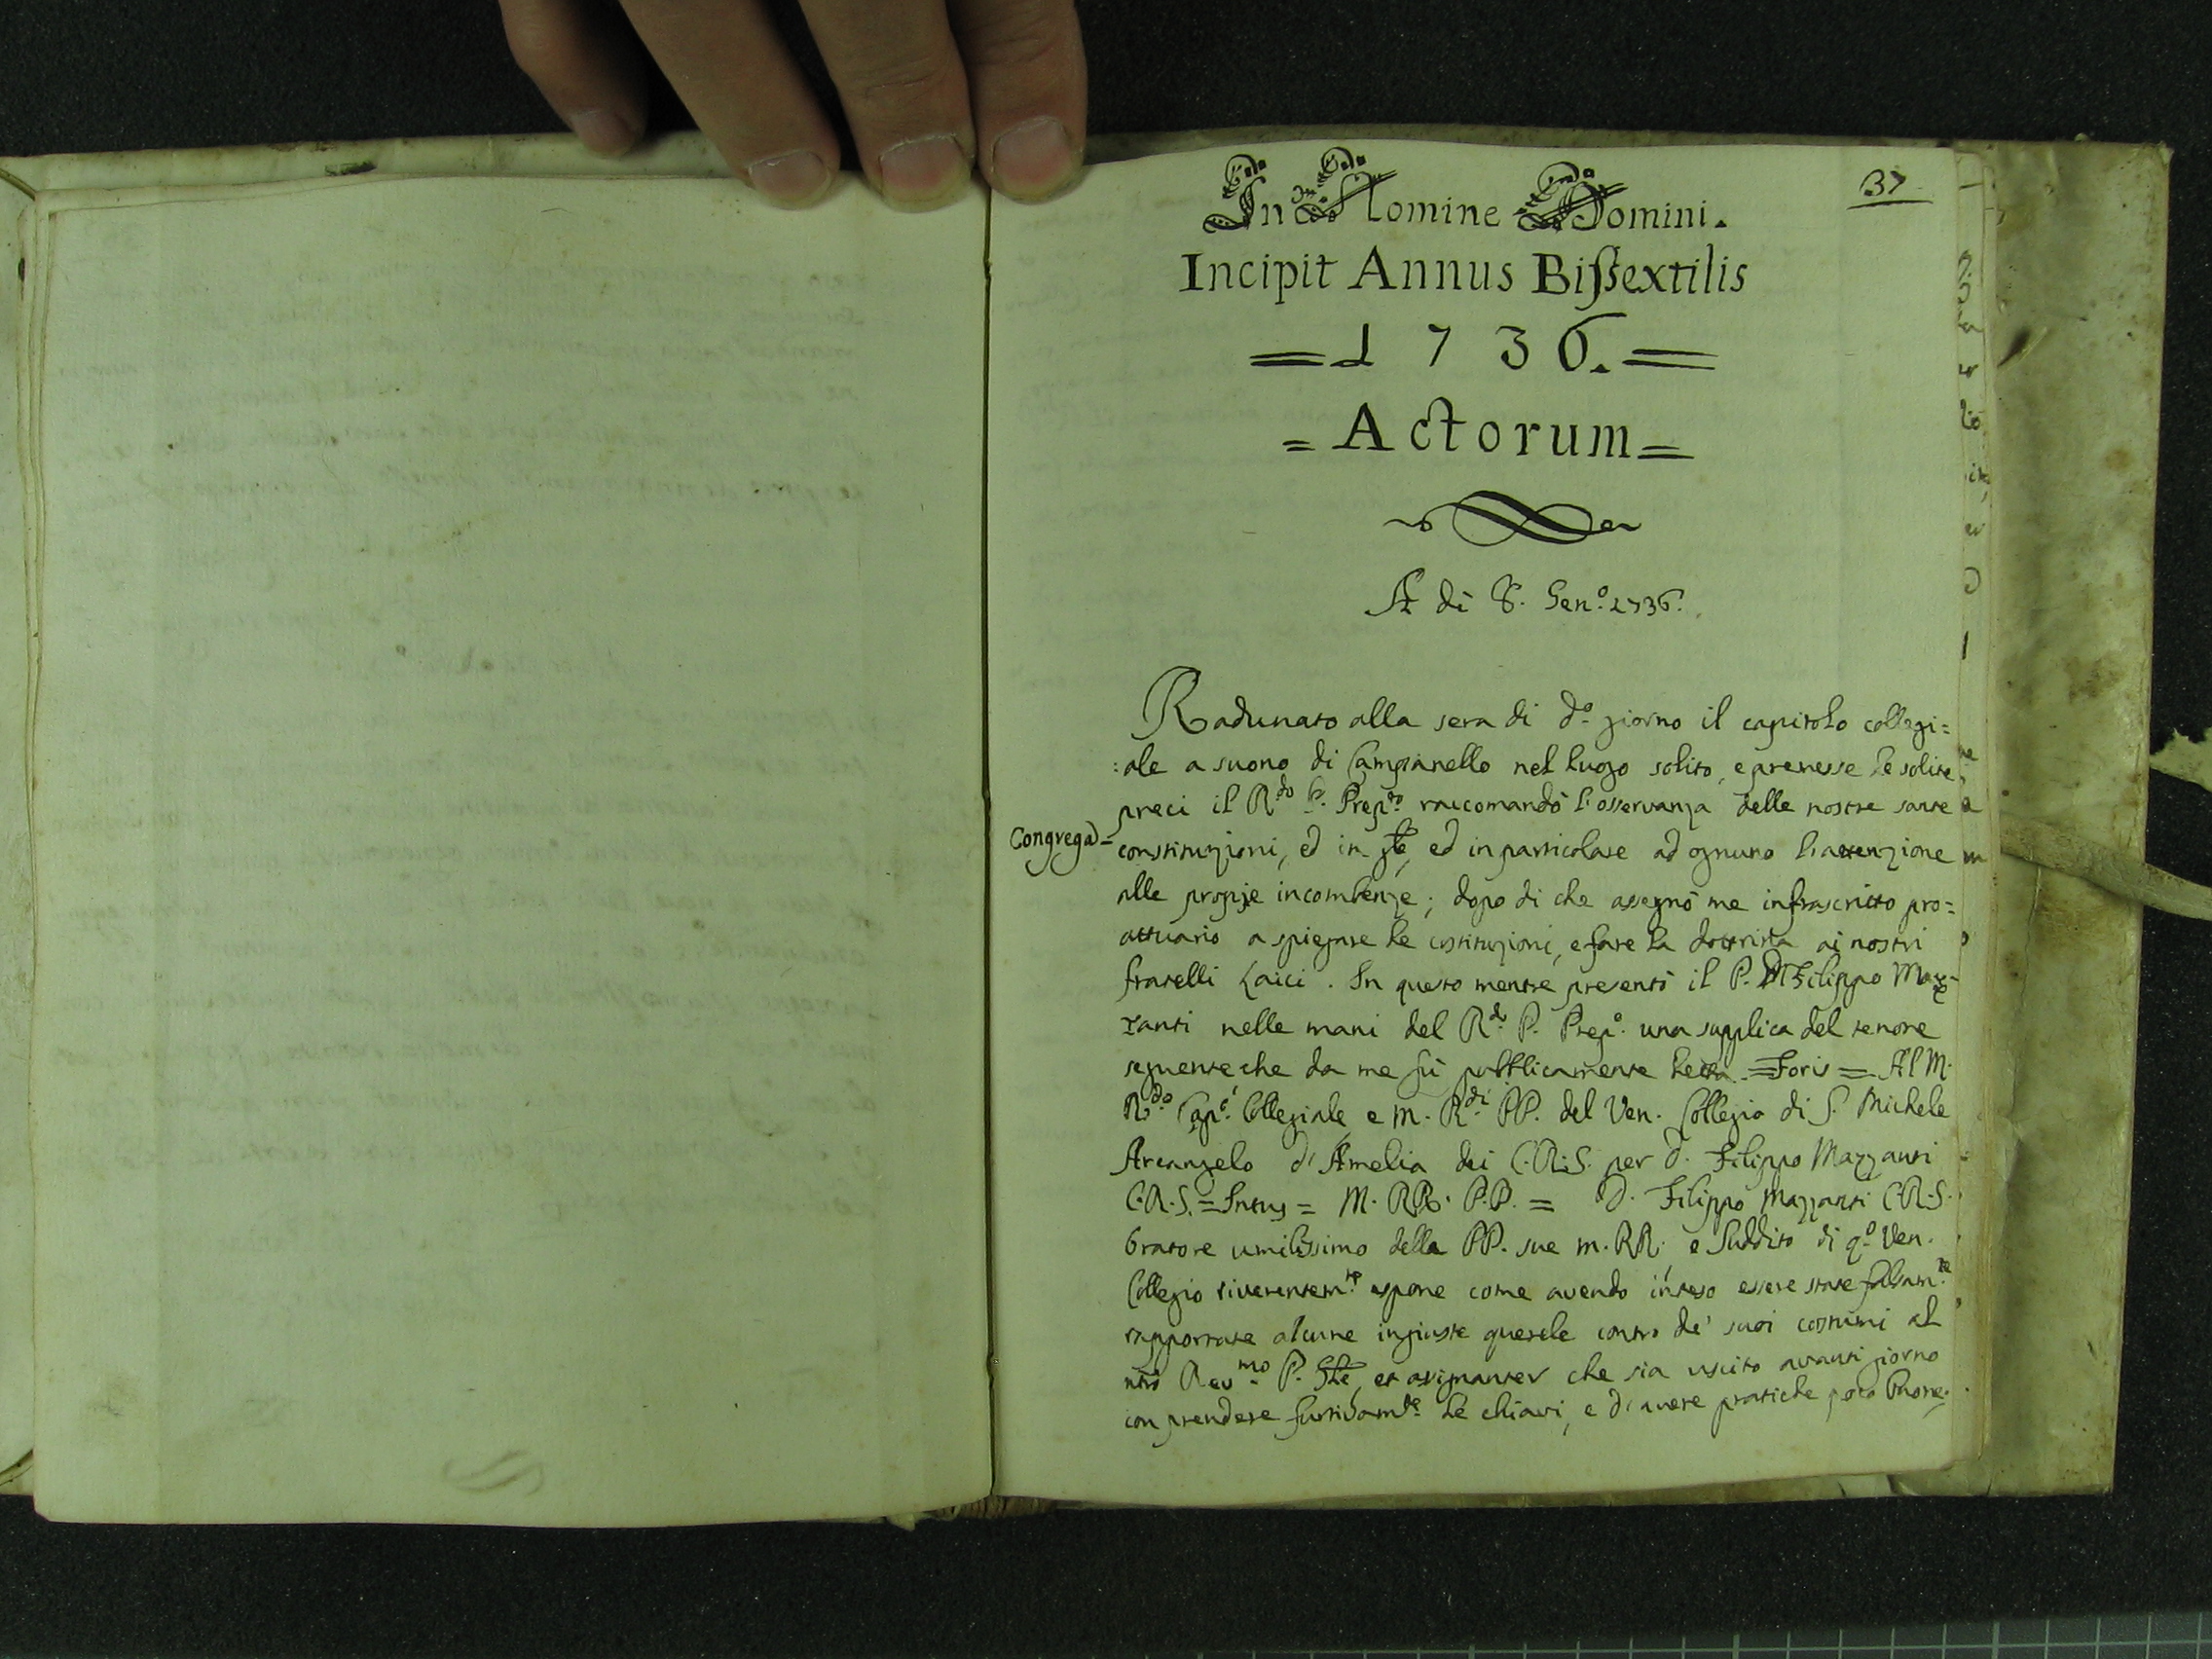 37
In Nomine Domini.
Incipit Annus Bissextilis
= 1 7 3 6. =
= Actorum =
A di 8. Gen.o 1736.
Radunato alla sera di d.o giorno il capitolo collegi=
:ale a suono di Campanello nel luogo solito, e premesse le solite
preci il R.do P. Prep.to raccomandò l'osservanza delle nostre sante
Congregaō=
constituzioni, ed in gle, ed in particolare ad ognuno l'attenzione
alle proprje incombenze; dopo di che assegnò me infrascritto pro=
attuario a spiegare le costituzioni, e fare la dottrina ai nostri
fratelli Laici. In questo mentre presentò il P. D. Filippo Maz-
zanti nelle mani del R.do P. Prep.o una supplica del tenore
seguente che da me fù pubblicamente letta = Foris = Al M.
R.do Cap.o Collegiale, e m. R.di PP. del Ven. Collegio di S. Michele
Arcangelo d'Amelia dei C.R.S. per D. Filippo Mazzanti
C.R.S. = Intus = M. RR. P.P. = D. Filippo Mazzanti C.R.S.
Oratore umilissimo delle PP. sue m. RR. e Suddito di q.o Ven.
Collegio riverentem.te espone come avendo inteso essere state falsam.te
rapportate alcune ingiuste querele contro de' suoi costumi al
nrō Rev.mo P. Gle, et assignanter che sia uscito avanti giorno
con prendere furtivam.te le chiavi, e d'avere pratiche poco buone.